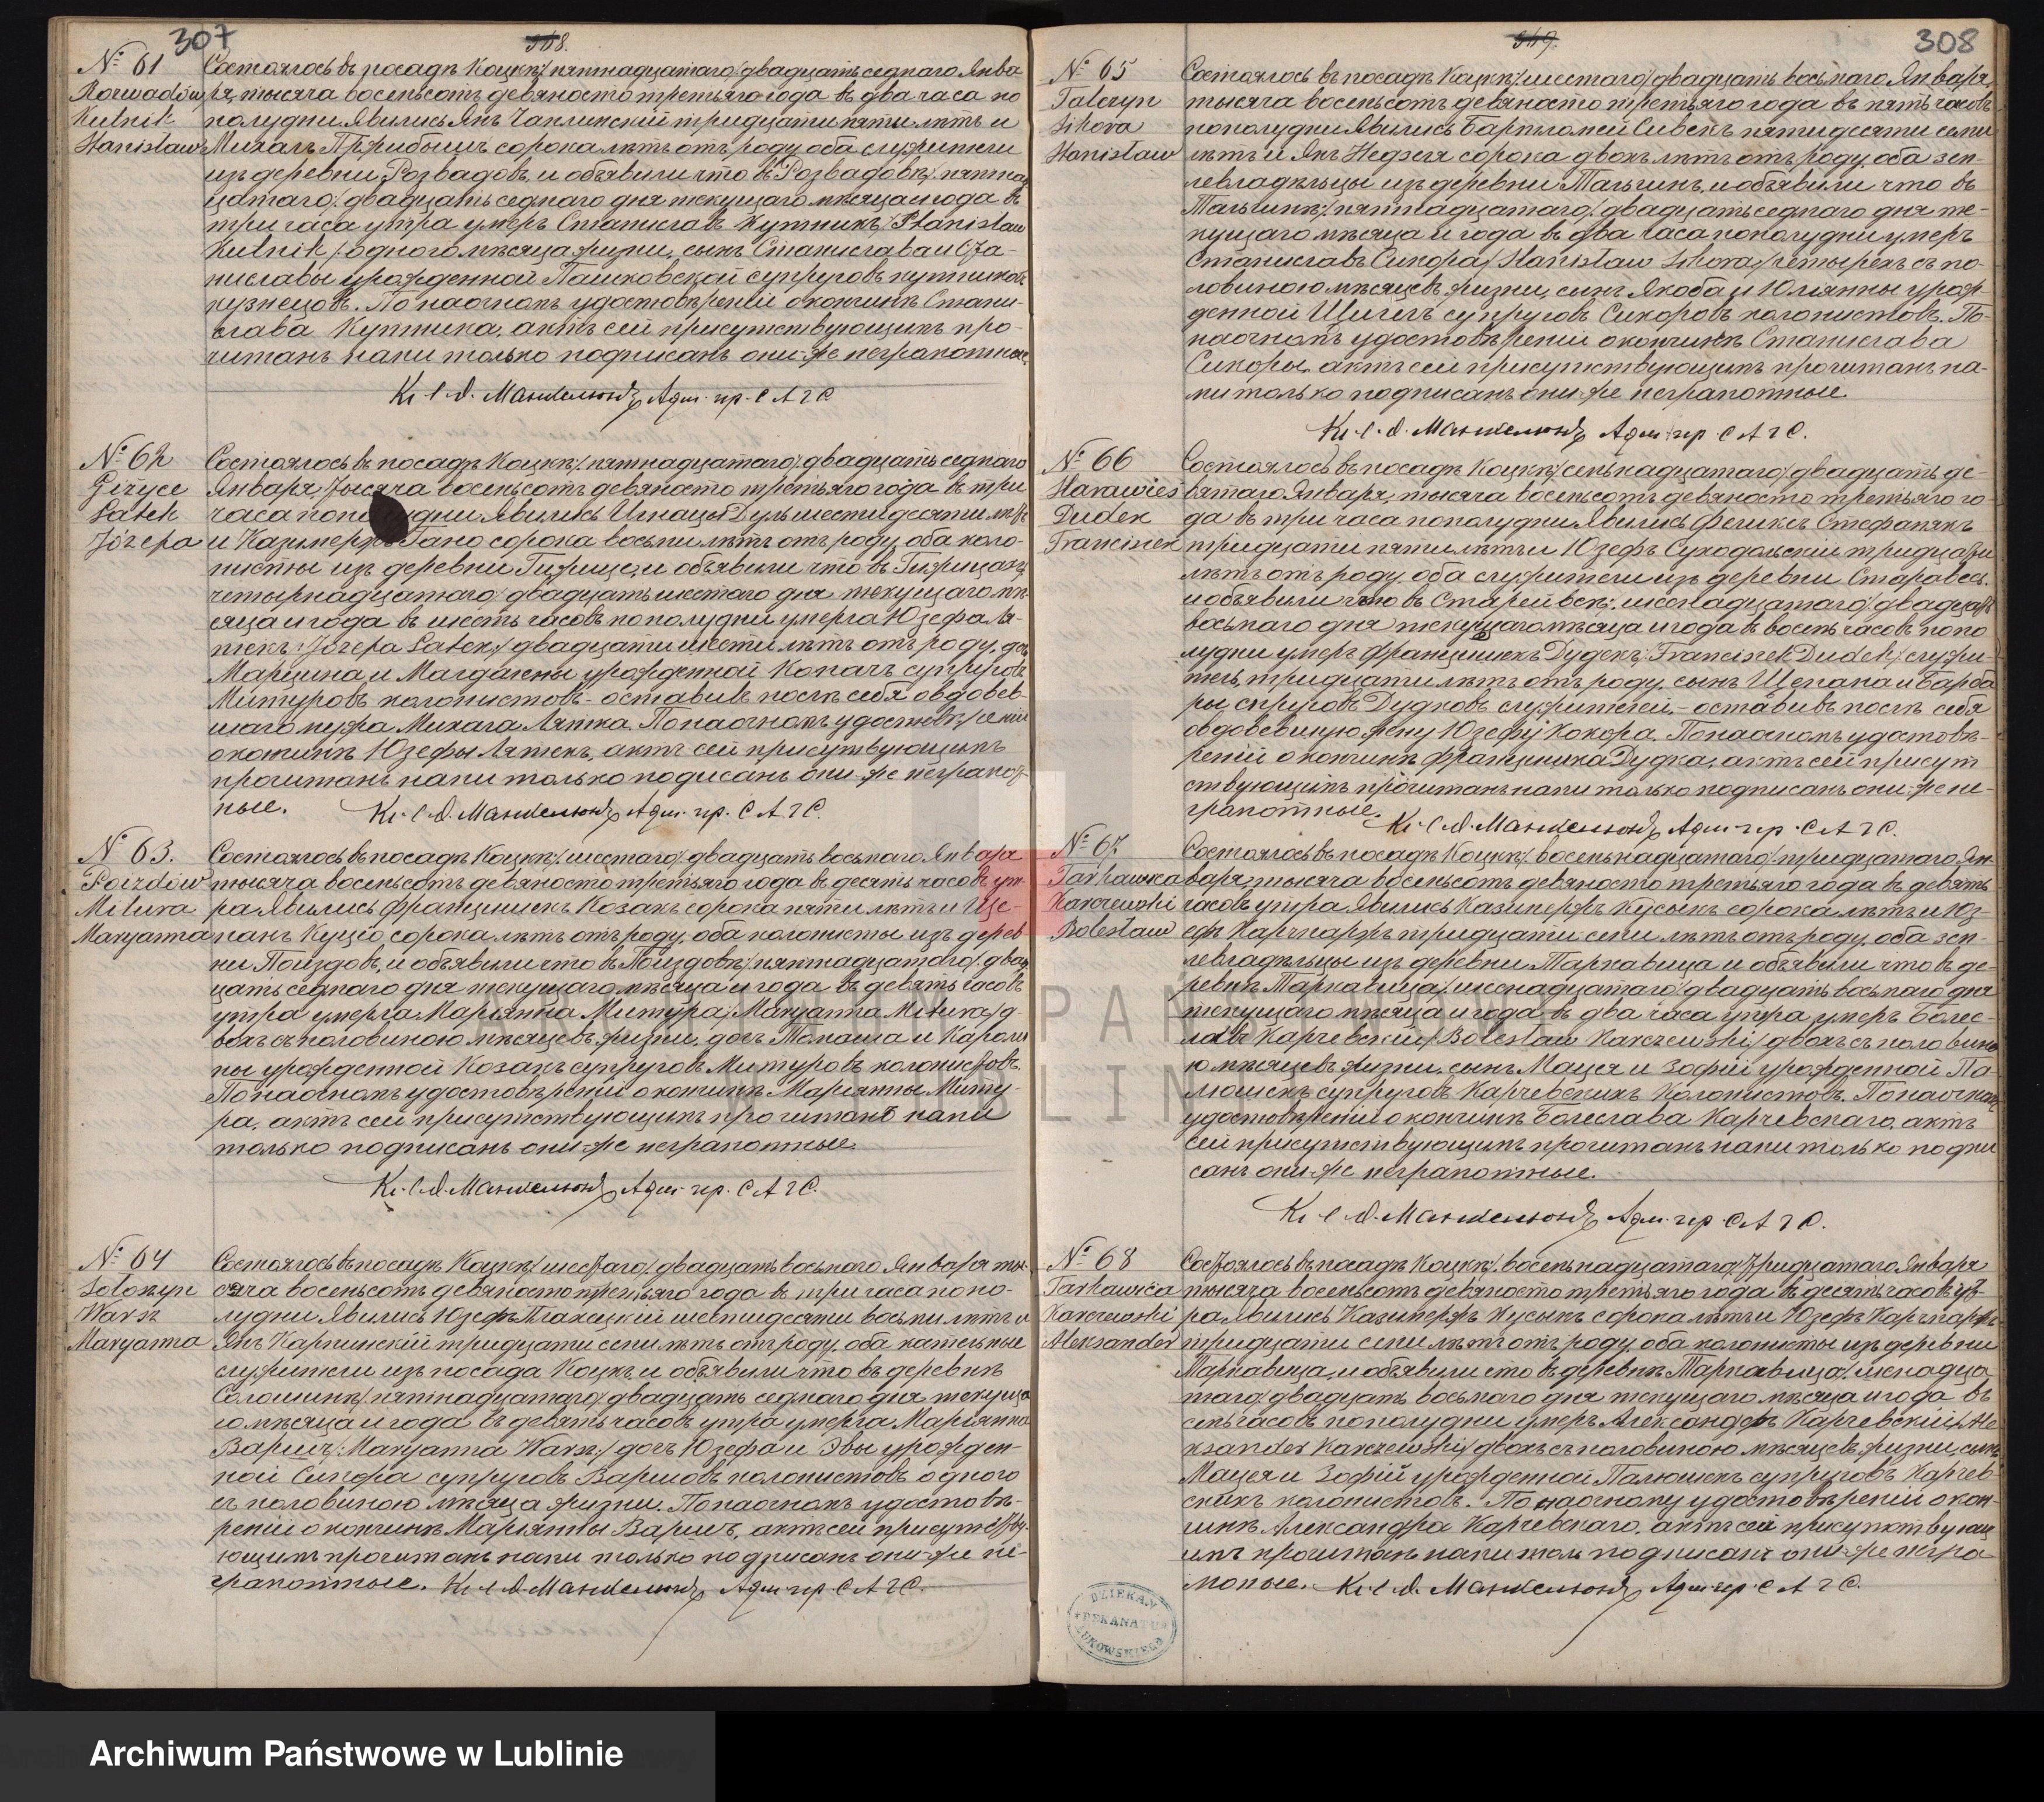 307
368.
№ 61
Rozwadów
Kutnik
Stanisław
Состоялось въ посадѣ Коцкѣ /:пятнадцатаго:/ двадцать седмаго Янва
ря, тысяча восемьсотъ девяносто третьяго года въ два часа по
полудни Явились Янъ Чаплинскій тридцати пяти лѣтъ и
Михалъ Пржибышъ сорока лѣтъ отъ роду, оба служители
изъ деревни Розвадовъ, и объявили что въ Розвадовѣ /:пятнад
цатаго:/ двадцать седмаго дня текущаго мѣсяца и года въ
три часа утра умеръ Станиславъ Кутникъ /:Stanisław
Kutnik:/ одного мѣсяца жизни, сынъ Станислава и Ста-
ниславы урожденной Пашковской супруговъ Кутниковъ
кузнецовъ. По наочномъ удостовѣреніи о кончинѣ Стани-
слава Кутника, актъ сей присутствующимъ про-
читанъ нами только подписанъ они-же неграмотные.
Кс. С. Д. Манкелюнъ Адм. пр. С А Г С
№ 62
Giżyce
Łatek
Józefa
Состоялось въ посадѣ Коцкѣ /:пятнадцатаго:/ двадцать седмаго
Января, тысяча восемьсотъ девяносто третьяго года въ три
часа пополудни явились Игнацы Дуль шестидесяти лѣтъ
и Казимержъ Гано сорока восьми лѣтъ отъ роду, оба коло-
нисты изъ деревни Гижице, и объявили что въ Гижицахъ
четырнадцатаго двадцать шестаго дня текущаго мѣ-
сяца и года въ шесть часовъ пополудни умерла Юзефа Ля-
текъ /:Józefa Łatek:/ двадцати шести лѣтъ отъ роду, дочь
Марцина и Магдалены урожденной Копачъ супруговъ
Митуровъ колонистовъ - оставивъ послѣ себя овдовев-
шаго мужа Михала Лятка. По наочномъ удостовѣреніи
о кончинѣ Юзефы Лятекъ, актъ сей присутвующимъ
прочитанъ нами только подисанъ они-же неграмот-
ные. Кс. С. Д. Манкелюнъ Адм. пр. С А Г С.
№ 63.
Poizdów
Mitura
Maryanna
Состоялось въ посадѣ Коцкѣ /:шестаго:/ двадцать восьмаго Января
тысяча восемьсотъ девяносто третьяго года въ десять часовъ ут-
ра Явились Францишекъ Козакъ сорока пяти лѣтъ и Ще-
панъ Куціо сорока лѣтъ отъ роду, оба колонисты изъ дерев
ни Поиздовъ, и объявили что въ Поиздовѣ /:пятнадцатаго:/ двад
цать седмаго дня текущаго мѣсяца и года въ девять часовъ
утра умерла Маріанна Митура /:Maryanna Mitura:/ д-
вохъ съ половиною мѣсяцевъ жизни, дочь Томаша и Кароли
ны урожденной Козакъ супруговъ Митуровъ колонистовъ.
По наочномъ удостовѣреніи о кончинѣ Маріанны Миту-
ра, актъ сей присутствующимъ прочитанъ нами
только подписанъ они-же неграмотные.
Кс. С. Д. Манкелюнъ Адм. пр. С А Г С.
№ 64
Sołoszyn
Warsz
Maryanna
Состоялось въ посадѣ Коцкѣ /:шестаго:/ двадцать восьмаго Января ты-
сяча восемьсотъ девяносто третьяго года въ три часа попо-
лудни Явились Юзефъ шестидесяти восьми лѣтъ и
Янъ Карпинскій тридцати семи лѣтъ отъ роду, оба
служители изъ посада Коцкъ, и объявили что въ деревнѣ
Солошинѣ /:пятнадцатаго:/ двадцать седмаго дня текуща
го мѣсяца и года въ девять часовъ утра умерла Маріанна
Варшъ /:Maryanna Warsz:/ дочь Юзефа и Эвы урожден-
ной Сикора супруговъ Варшовъ колонистовъ одного
съ половиною мѣсяца жизни. По наочномъ удостовѣ-
реніи о кончинѣ Маріанны Варшъ, актъ сей присутству-
ющимъ прочитанъ нами только подписанъ они-же не-
грамотные. Кс. С. Д. Манкелюнъ Адм. пр. С А Г С.
369.
308
№ 65
Talczyn
Sikora
Stanisław
Состоялось въ посадѣ Коцкѣ /:шестаго:/ двадцать восьмаго Января,
тысяча восемьсотъ девяносто третьяго года въ пять часовъ
пополудни Явились Бартломей Сивекъ пятидесяти семи
лѣтъ и Янъ Недзеля сорока двохъ лѣтъ отъ роду, оба зем-
левладѣльцы изъ деревни Тальчинъ, и объявили что въ
Тальчинѣ /:пятнадцатаго:/ двадцать седмаго дня те-
кущаго мѣсяца и года въ два часа пополудни умеръ
Станиславъ Сикора /:Stanisław Sikora:/ четырехъ съ по-
ловиною мѣсяцевъ жизни, сынъ Якоба и Юліянны урож-
денной Щигелъ супруговъ Сикоровъ колонистовъ. По-
наочномъ удостовѣреніи о кончинѣ Станислава
Сикоры, актъ сей присутствующимъ прочитанъ на-
ми только подписанъ они-же неграмотные.
Кс. С. Д. Манкелюнъ Адм. пр. С А Г С.
№ 66
Starawieś
Dudek
Franciszek
Состоялось въ посадѣ Коцкѣ /:семьнадцатаго:/ двадцать де-
вятаго Января, тысяча восемьсотъ девяносто третьяго го-
да въ три часа пополудни Явились Феликсъ Стефанякъ
тридцати пяти лѣтъ и Юзефъ Суходольскій тридцати
лѣтъ отъ роду, оба служители изъ деревни Старавесь.
и объявили что въ Старейвси /:шеснадцатаго:/ двадцать
восьмаго дня текущаго мѣсяца и года въ восемь часовъ попо
лудни умеръ Францишекъ Дудекъ /:Franciszek Dudek:/ служи-
тель, тридцати лѣтъ отъ роду, сынъ Щепана и Барба
ры, спруговъ Дудковъ служителей, - оставивъ послѣ себя
овдовевшую жену Юзефу Кокора. По наочномъ удостовѣ-
реніи о кончинѣ Францишка Дудка, актъ сей присут
ствующимъ прочитанъ нами только подписанъ они-же не-
грамотные. Кс. С. Д. Манкелюнъ Адм. пр. С А Г С.
№ 67
Tarkawica
Karczewski
Bolesław
Состоялось въ посадѣ Коцкѣ /:восемьнадцатаго:/ тридцатаго Ян
варя, тысяча восемьсотъ девяносто третьяго года въ девять
часовъ утра, Явились Казимержъ Кусыкъ сорока лѣтъ и Юз-
ефъ Карчмаржъ тридцати семи лѣтъ отъ роду, оба зем-
левладѣльцы изъ деревни Таркавица и объявили что въ де-
ревнѣ Таркавица /:шеснадцатаго:/ двадцать восьмаго дня
текущаго мѣсяца и года въ два часа утра умеръ Болес-
лавъ Карчевскій /:Bolesław Karczewski:/ двохъ съ половино
ю мѣсяцевъ жизни, сынъ Мацея и Зофіи урожденной Па-
люшекъ супруговъ Карчевскихъ колонистовъ. По наочномъ
удостовѣреніи о кончинѣ Болеслава Карчевскаго, актъ
сей присутствующимъ прочитанъ нами только подпи
санъ они-же неграмотные.
Кс. С. Д. Манкелюнъ Адм. пр. С А Г С.
№ 68
Tarkawica
Karczewski
Aleksander
Состоялось въ посадѣ Коцкѣ /:восемьнадцатаго:/ тридцатаго Января
тысяча восемьсотъ девяносто третьяго года въ десять часовъ ут-
ра Явились Казимержъ Кусыкъ сорока лѣтъ и Юзефъ Карчмаржъ
тридцати семи лѣтъ отъ роду, оба колонисты изъ деревни
Таркавица, и объявили что въ деревнѣ Таркавица /:шеснадца
таго:/ двадцать восьмаго дня текущаго мѣсяца и года въ
семь часовъ пополудни умеръ Александеръ Карчевскій /:Ale
ksander Karczewski:/ двохъ съ половиною мѣсяцевъ жизни, сынъ
Мацея и Зофіи урожденной Палюшекъ супруговъ Карчев
скихъ колонистовъ. По наочному удостовѣреніи о кон-
чинѣ Александра Карчевскаго, актъ сей присутствующ
имъ прочитанъ нами толь подписанъ они-же негра
мотные. Кс. С. Д. Манкелюнъ Адм. пр. С А Г С.
DZIEKAN
DEKANATU
ŁUKOWSKIEGO
ARCHIWUM PAŃSTWOWE
W LUBLINIE
Archiwum Państwowe w Lublinie